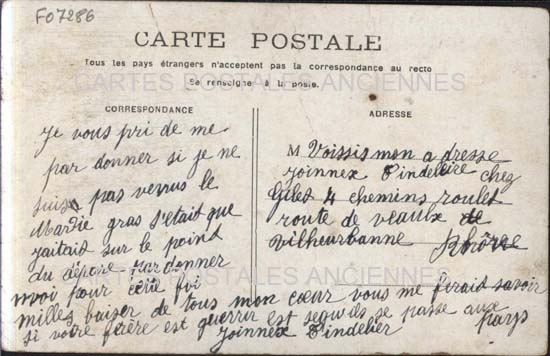 F07286
CARTE POSTALE
Tous les pays étrangers n'acceptent pas la correspondance au recto
Se renseigne à la poste.
CARTES POSTALES ANCIENNES
CORRESPONDANCE
je vous pri de me
par donner si je ne
suise pas venus le
Mardie gras s'etait que
jaitait sur le point
du dépare par donner
mvoi pour cette foi
milles baiser de tous mon cœur vous me firaid savoir
si votre frère est guerrir est segu'ils se passe aux
pays
joinnex P'indelier
ADRESSE
M Voissis mon a dresse
joinnex P'indelire chez
Gilet 4 chemins roulet
route de veaulx de
vilheurbanne Rhône
CARTES POSTALES ANCIENNES